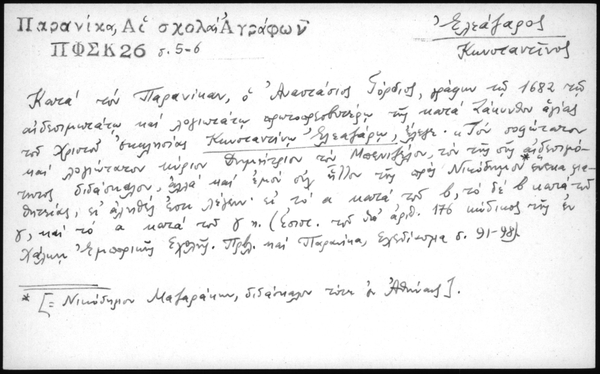 Παρανίκα, Αἱ σχολαὶ Ἀγράφων
ΠΦΣΚ 26 σ. 5-6
Ἐλεάζαρος
Κωνσταντῖνος
Κατὰ τὸν Παρανίκαν, ὁ Ἀναστάσιος Γόρδιος, γράφων τῷ 1682 τῷ
αἰδεσιμωτάτῳ καὶ λογιωτάτῳ πρωτοπρεσβυτέρῳ τῆς κατὰ Ζάκυνθον ἁγίας
τοῦ Χριστοῦ ἐκκλησίας Κωνσταντίνῳ Ἐλεαζάρῳ, λέγει· « Τὸν σοφώτατον
καὶ λογιώτατον κύριον Δημήτριον τὸν Μπενιζέλον, τὸν τῆς σῆς αἰδεσιμό-
τητος διδάσκαλον, ἀλλὰ καὶ ἐμὸν οὐχ ἧττον τῆς πρὸς Νικόδημον * ἕνεκα μα-
θητείας, εἰ ἀληθές ἐστι λέγειν· εἰ τὸ α κατὰ τοῦ β, τὸ δὲ β κατὰ τοῦ
γ, καὶ τὸ α κατὰ τοῦ γ ». (Ἐπιστ. τοῦ ὑπ' ἀριθ. 176 κώδικος τῆς ἐν
Χάλκῃ Ἐμπορικῆς Σχολῆς. Πρβλ. καὶ Παρανίκα, Σχεδίασμα σ. 91-98).
* [= Νικόδημον Μαζαράκην, διδάσκαλον τότε ἐν Ἀθήναις].